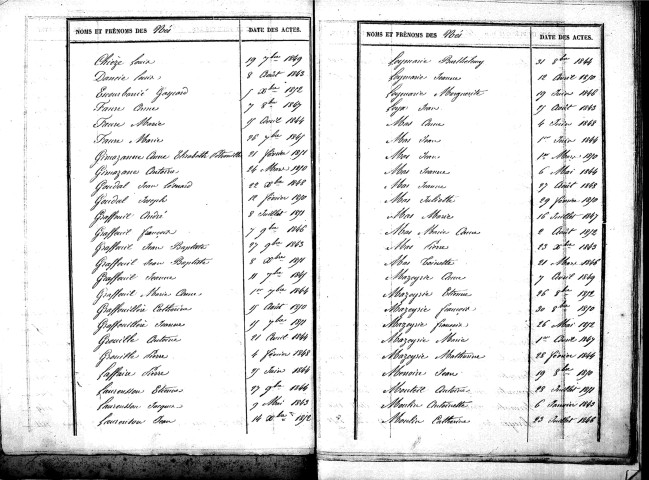 NOMS ET PRÉNOMS DES Nés
DATE DES ACTES.
Chièze Louis 19 7bre 1849
Dauvie Louis 8 Août 1843
Escombarié Gaspard 5 Xbre 1872
Faure Anne 7 8bre 1847
Faure Marie 9 Avril 1844
Faure Marie 26 7bre 1845
Gimazanne Anne Elisabeth 21 Février 1871
Gimazane Antoine 24 Mars 1870
Goudal Jean Léonard 22 Xbre 1848
Goudal Joseph 12 Février 1870
Graffeuil André 8 Juillet 1871
Graffeuil François 7 9bre 1846
Graffeuil Jean Baptiste 27 9bre 1843
Graffeuil Jean Baptiste 8 Xbre 1871
Graffeuil Jeanne 11 7bre 1841
Graffeuil Marie Anne 1er 7bre 1844
Graffouillère Catherine Août 1870
Graffouillère Jeanne 7bre 1871
Grouille Antoine 21 Août 1844
Grouille Pierre 4 Février 1848
Laffaire Pierre Juin 1844
Lauransson Etienne 27 9bre 1846
Lauransson Jacques 9 Mai 1843
Lauranson Jean 14 Xbre 1872
NOMS ET PRÉNOMS DES Nés
DATE DES ACTES.
Leymarie Barthélemy 31 8bre 1844
Leymarie Jeanne 12 Avril 1870
Leymarie Marguerite 19 Juin 1846
Leyx Jean Août 1843
Mas Anne 4 Juin 1848
Mas Jean 1er Juin 1844
Mas Jean 1er Mars 1870
Mas Jeanne 6 Mai 1844
Mas Jeanne 27 Août 1848
Mas Juliette 29 Février 1870
Mas Marie 16 Juillet 1847
Mas Marie Anne 2 Août 1872
Mas Pierre 23 Xbre 1843
Mas Toinette 21 Mars 1846
Mazeyrie Anne 7 Avril 1849
Mazeyrie Etienne 26 8bre 1872
Mazeyrie François 30 8bre 1870
Mazeyrie François 26 Mai 1872
Mazeyrie Marie 1er Avril 1847
Mazeyrie Mathurine 28 Février 1844
Monnoire Jean 19 8bre 1870
Monteil Antoine 28 Juillet 1871
Moulin Antoinette 6 Janvier 1843
Moulin Catherine 23 Juillet 1846